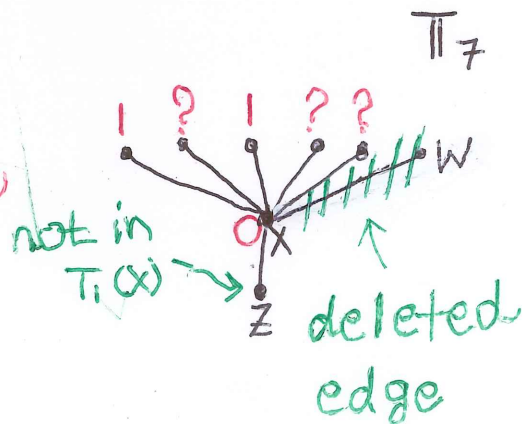 𝕋₇
1 ? 1 ? ?
W
0 X
not in
T₁(X)
Z
deleted
edge